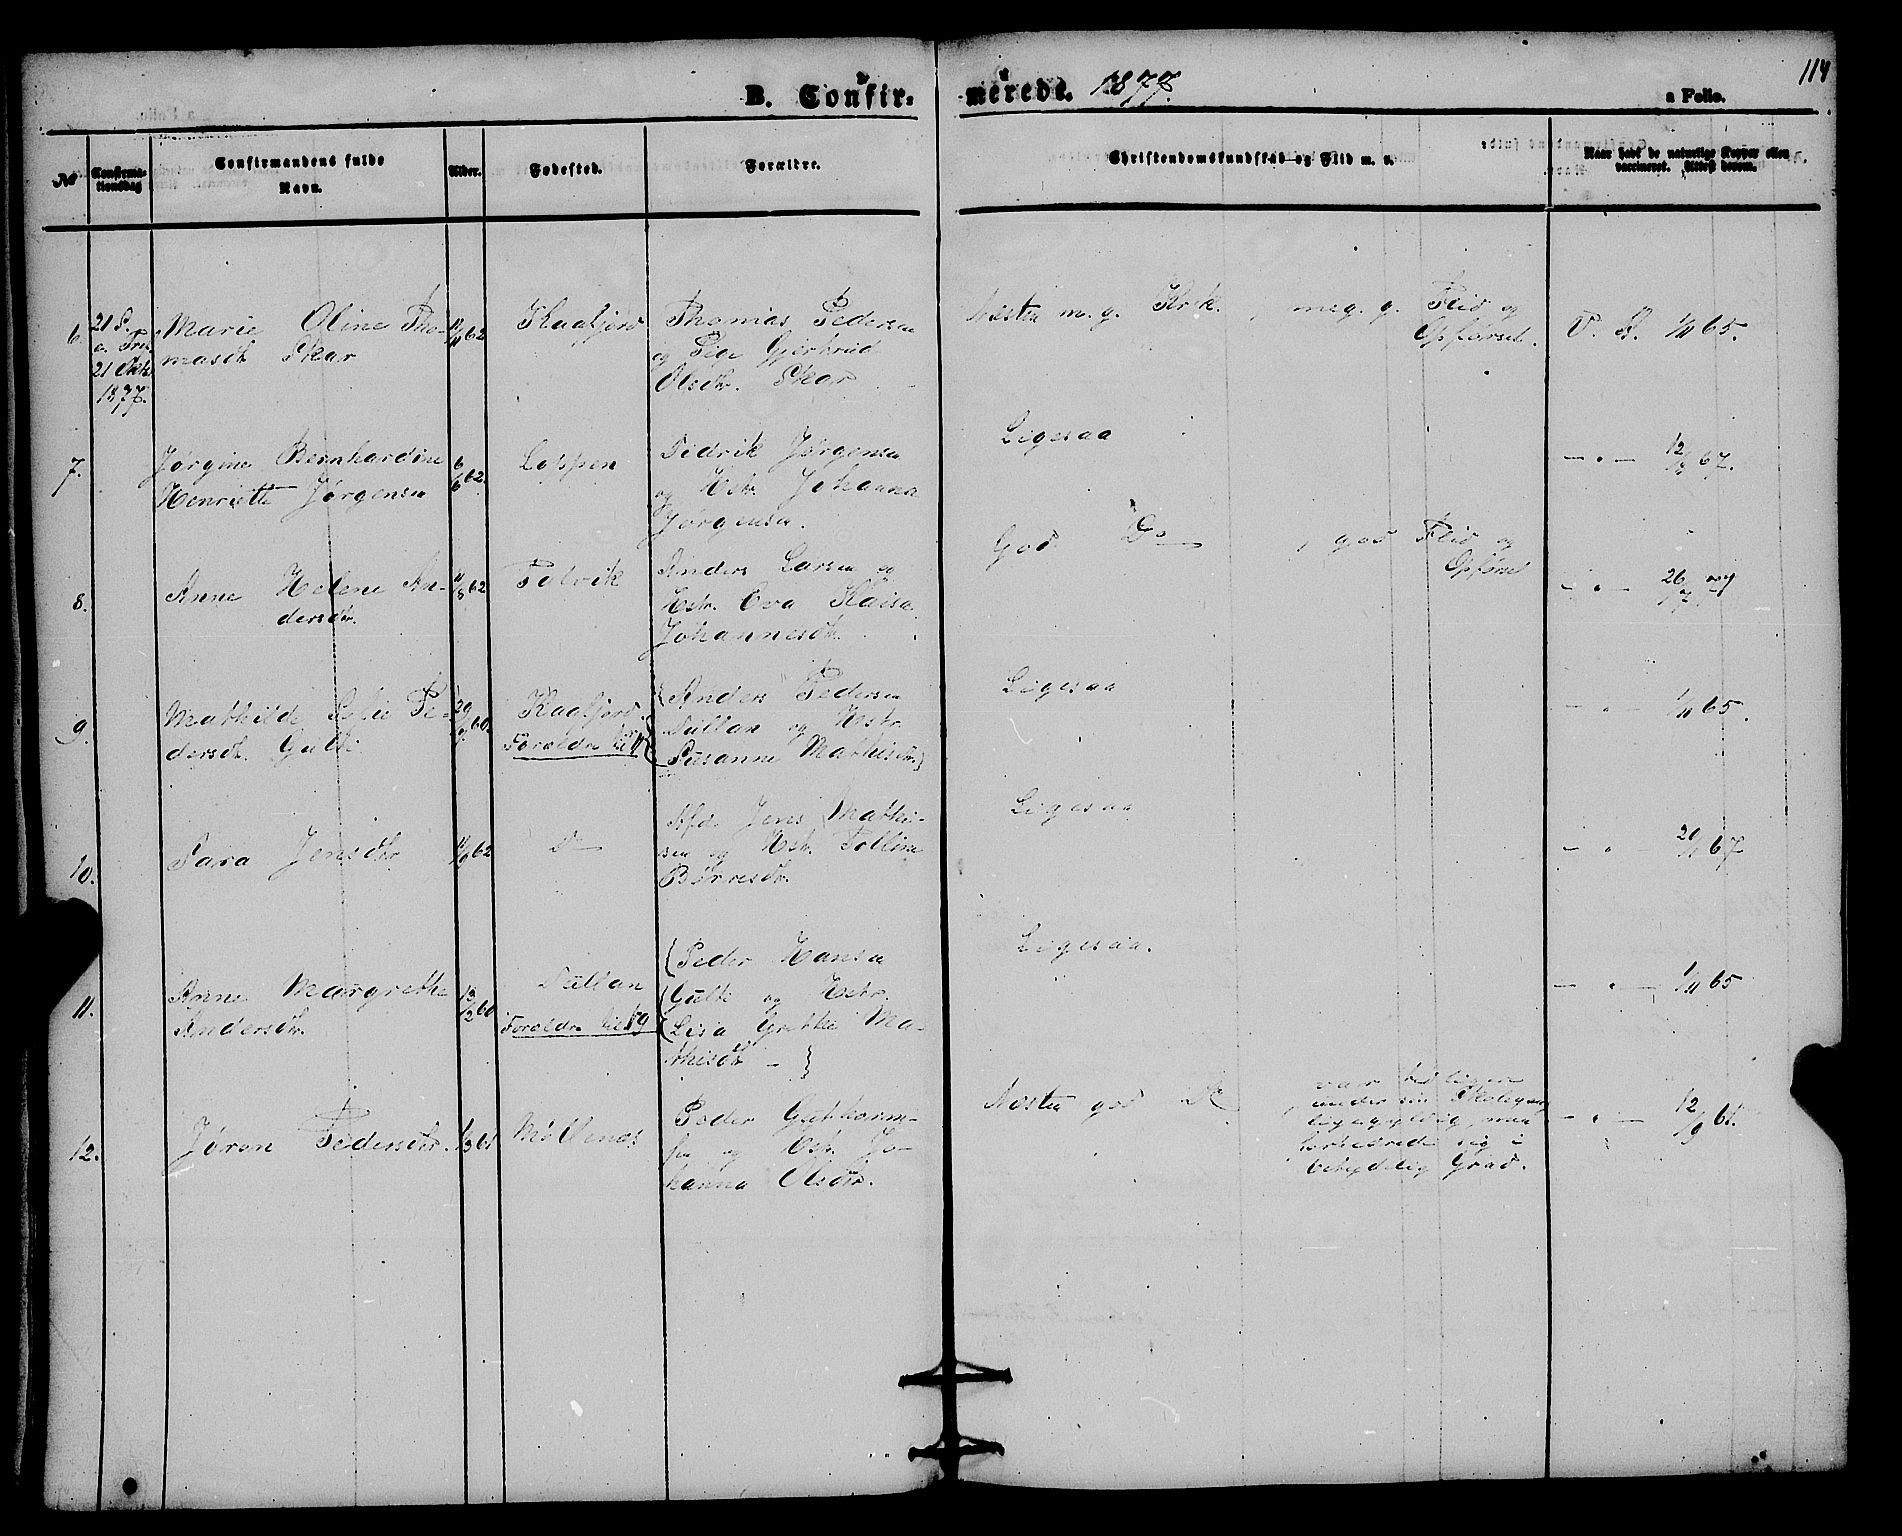 B. Confir- merede. 1877.
114
a Folio.
No
Confirmationsdag
Confirmandens fulde Navn.
Alder.
Fødested.
Forældre.
Christendomskundskab og Flid m. v.
Naar havt de naturlige Kopper eller vaccineret. Attest derom.
6.
21 S.
a. Trin
21 Okt.
1877.
Marie Oline Tho-
masdtr Skar
62
Kaafjord
Thomas Pedersen
og Gjertrud
Olsdtr. Skar
Næsten m. g. Krk. , meg. g. Flid og
Opførsel.
V. A. 1/11 65.
7.
Jørgine Bernhardine
Henriette Jørgensen
6/6 62.
Loppen
Didrik Jørgensen
og Hstr. Johanna
Jørgensen.
Ligesaa
— " — 67.
8.
Anne Helene An-
dersdtr.
11/8 62
Talvik
Anders Larsen og
Hstr. Eva Kaisa
Johannesdtr.
God Do , god Flid og
Opførsel
— " — 26
9.
Mathilde Sofie Pe-
dersdtr. Gulte
29 60
Kaafjord.
Forældre til 11
{Anders Pedersen
Dullan og Hstr.
Susanne Mathisdtr.}
Ligesaa
— " — 1/11 65.
10.
Sara Jensdtr
11/9 62
Do
Afd. Jens Mathi-
sen og Hstr.
Ligesaa
— " — 20 67
11.
Anne Margrethe
Andersdtr.
13/2 60
Dullan
Forældre til 9
{Peder Hansen
Gulte og Hstr.
Lisa Grethe Ma-
thisdtr }
Ligesaa.
— " — 1/11 65
12.
Jøron Pedersdtr.
61
Møllenæs
Peder Guttorm-
sen og Hstr. Jo-
hanna Olsdtr.
Næsten god Do , var tidligere
under sin Skolegang
ligegyldig, men
forbedrede sig i
betydelig Grad.
— " — 12/9 61.